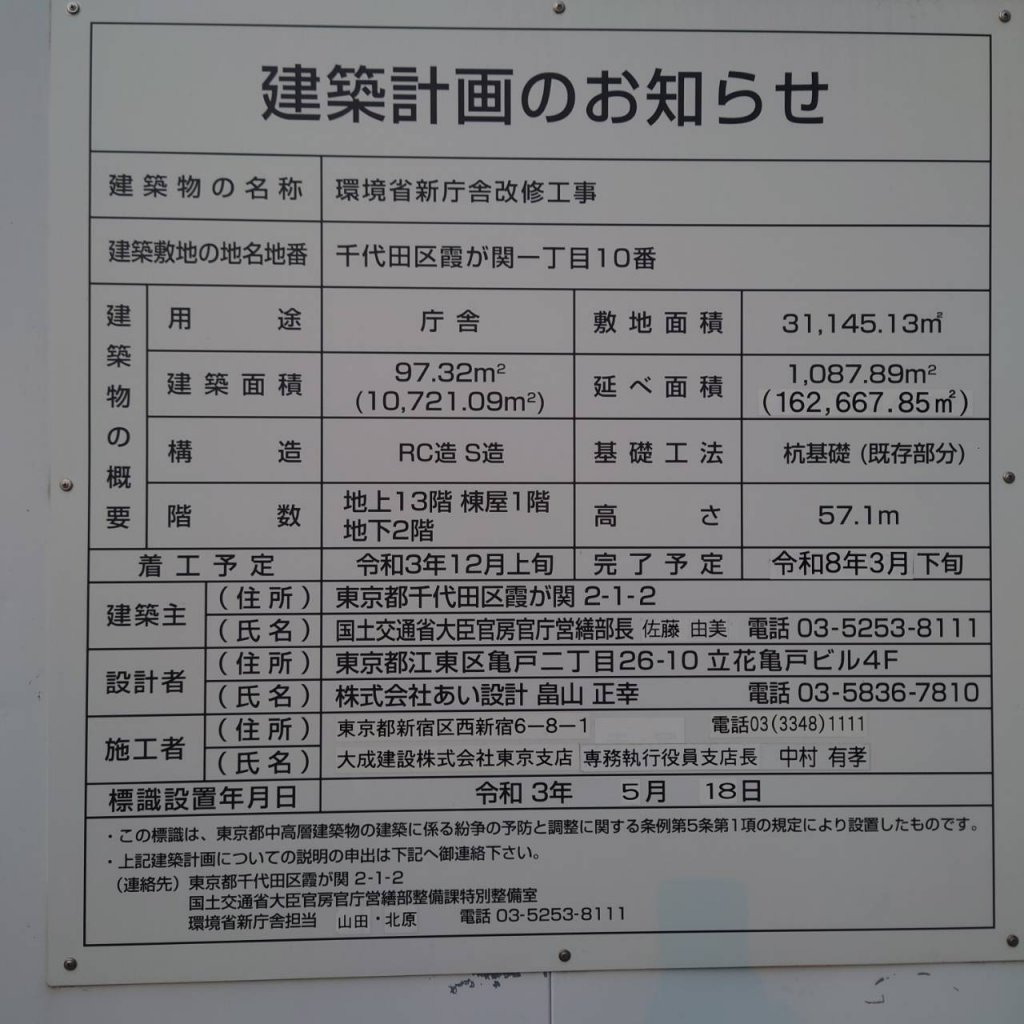 建築計画のお知らせ
建築物の名称 環境省新庁舎改修工事
建築敷地の地名地番 千代田区霞が関一丁目10番
建築物の概要
用途 庁舎 敷地面積 31,145.13㎡
建築面積 97.32m² (10,721.09m²) 延べ面積 1,087.89m² (162,667.85㎡)
構造 RC造 S造 基礎工法 杭基礎 (既存部分)
階数 地上13階 棟屋1階 地下2階 高さ 57.1m
着工予定 令和3年12月上旬 完了予定 令和8年3月下旬
建築主 (住所) 東京都千代田区霞が関 2-1-2
(氏名) 国土交通省大臣官房官庁営繕部長 佐藤 由美 電話 03-5253-8111
設計者 (住所) 東京都江東区亀戸二丁目26-10 立花亀戸ビル4F
(氏名) 株式会社あい設計 畠山 正幸 電話 03-5836-7810
施工者 (住所) 東京都新宿区西新宿6-8-1 電話03(3348)1111
(氏名) 大成建設株式会社東京支店 専務執行役員支店長 中村 有孝
標識設置年月日 令和 3年 5月 18日
・この標識は、東京都中高層建築物の建築に係る紛争の予防と調整に関する条例第5条第1項の規定により設置したものです。
・上記建築計画についての説明の申出は下記へ御連絡下さい。
(連絡先) 東京都千代田区霞が関 2-1-2
国土交通省大臣官房官庁営繕部整備課特別整備室
環境省新庁舎担当 山田・北原 電話 03-5253-8111